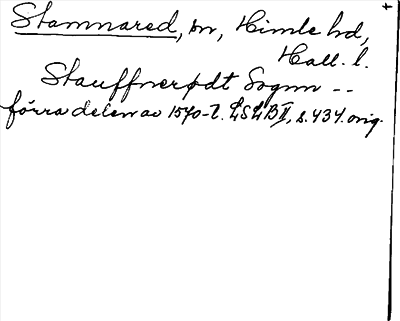 Stamnared, sn, Himle hd,
Hall. l.
Stauffnerødt Sognn --
förra delen av 1570-t. LSLBII, s. 434. orig.